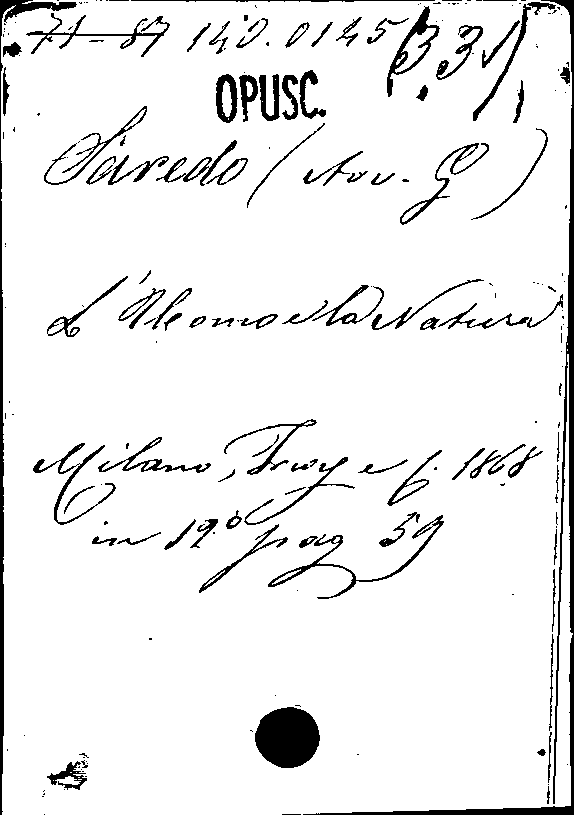 71-87 140.0145 (33)
OPUSC.
Saredo (Avv. G)
L'Uomo e la Natura
Milano, Treves e f. 1868
in 12º pag 59